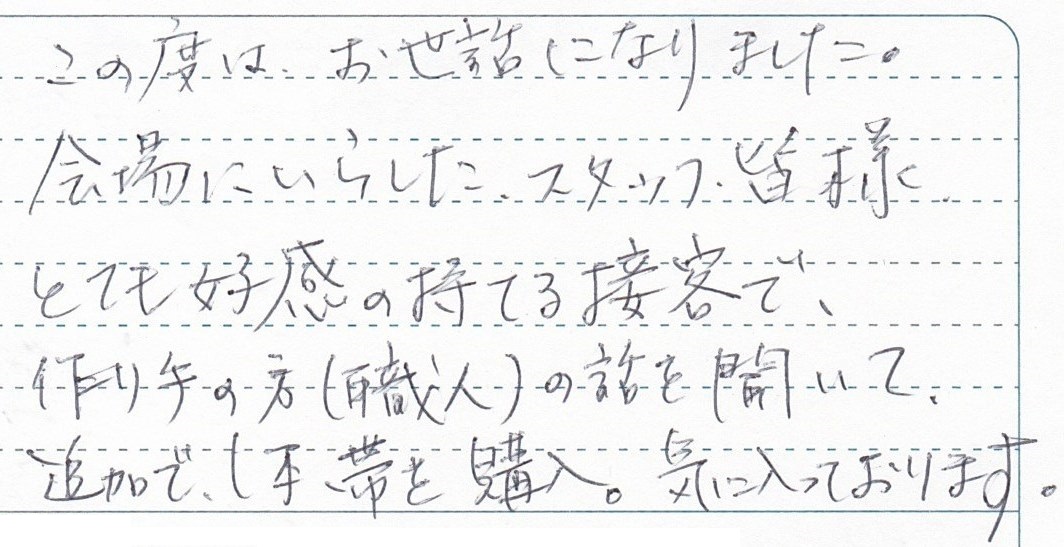 この度は、お世話になりました。
会場にいらした、スタッフ、皆様、
とても好感の持てる接客で、
作り手の方(職人)の話を聞いて、
追加で、帯を購入。気に入っております。